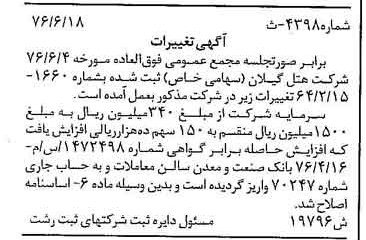 شماره ۴۳۹۸-ث ۷۶/۶/۱۸
آگهی تغییرات
برابر صورتجلسه مجمع عمومی فوق‌العاده مورخه ۷۶/۶/۴
شرکت هتل گیلان (سهامی خاص) ثبت شده بشماره ۱۶۶۰-
۶۴/۲/۱۵ تغییرات زیر در شرکت مذکور بعمل آمده است.
سرمایه شرکت از مبلغ ۳۴۰ میلیون ریال به مبلغ
۱۵۰۰ میلیون ریال منقسم به ۱۵۰ سهم ده‌هزارریالی افزایش یافت
که افزایش حاصله برابر گواهی شماره ۱۴۷۲۴۹۸/س/م-
۷۶/۴/۱۶ بانک صنعت و معدن سالن معاملات و به حساب جاری
شماره ۷۰۲۴۷ واریز گردیده است و بدین وسیله ماده ۶- اساسنامه
اصلاح شد.
ش ۱۹۷۹۶ مسئول دایره ثبت شرکتهای ثبت رشت